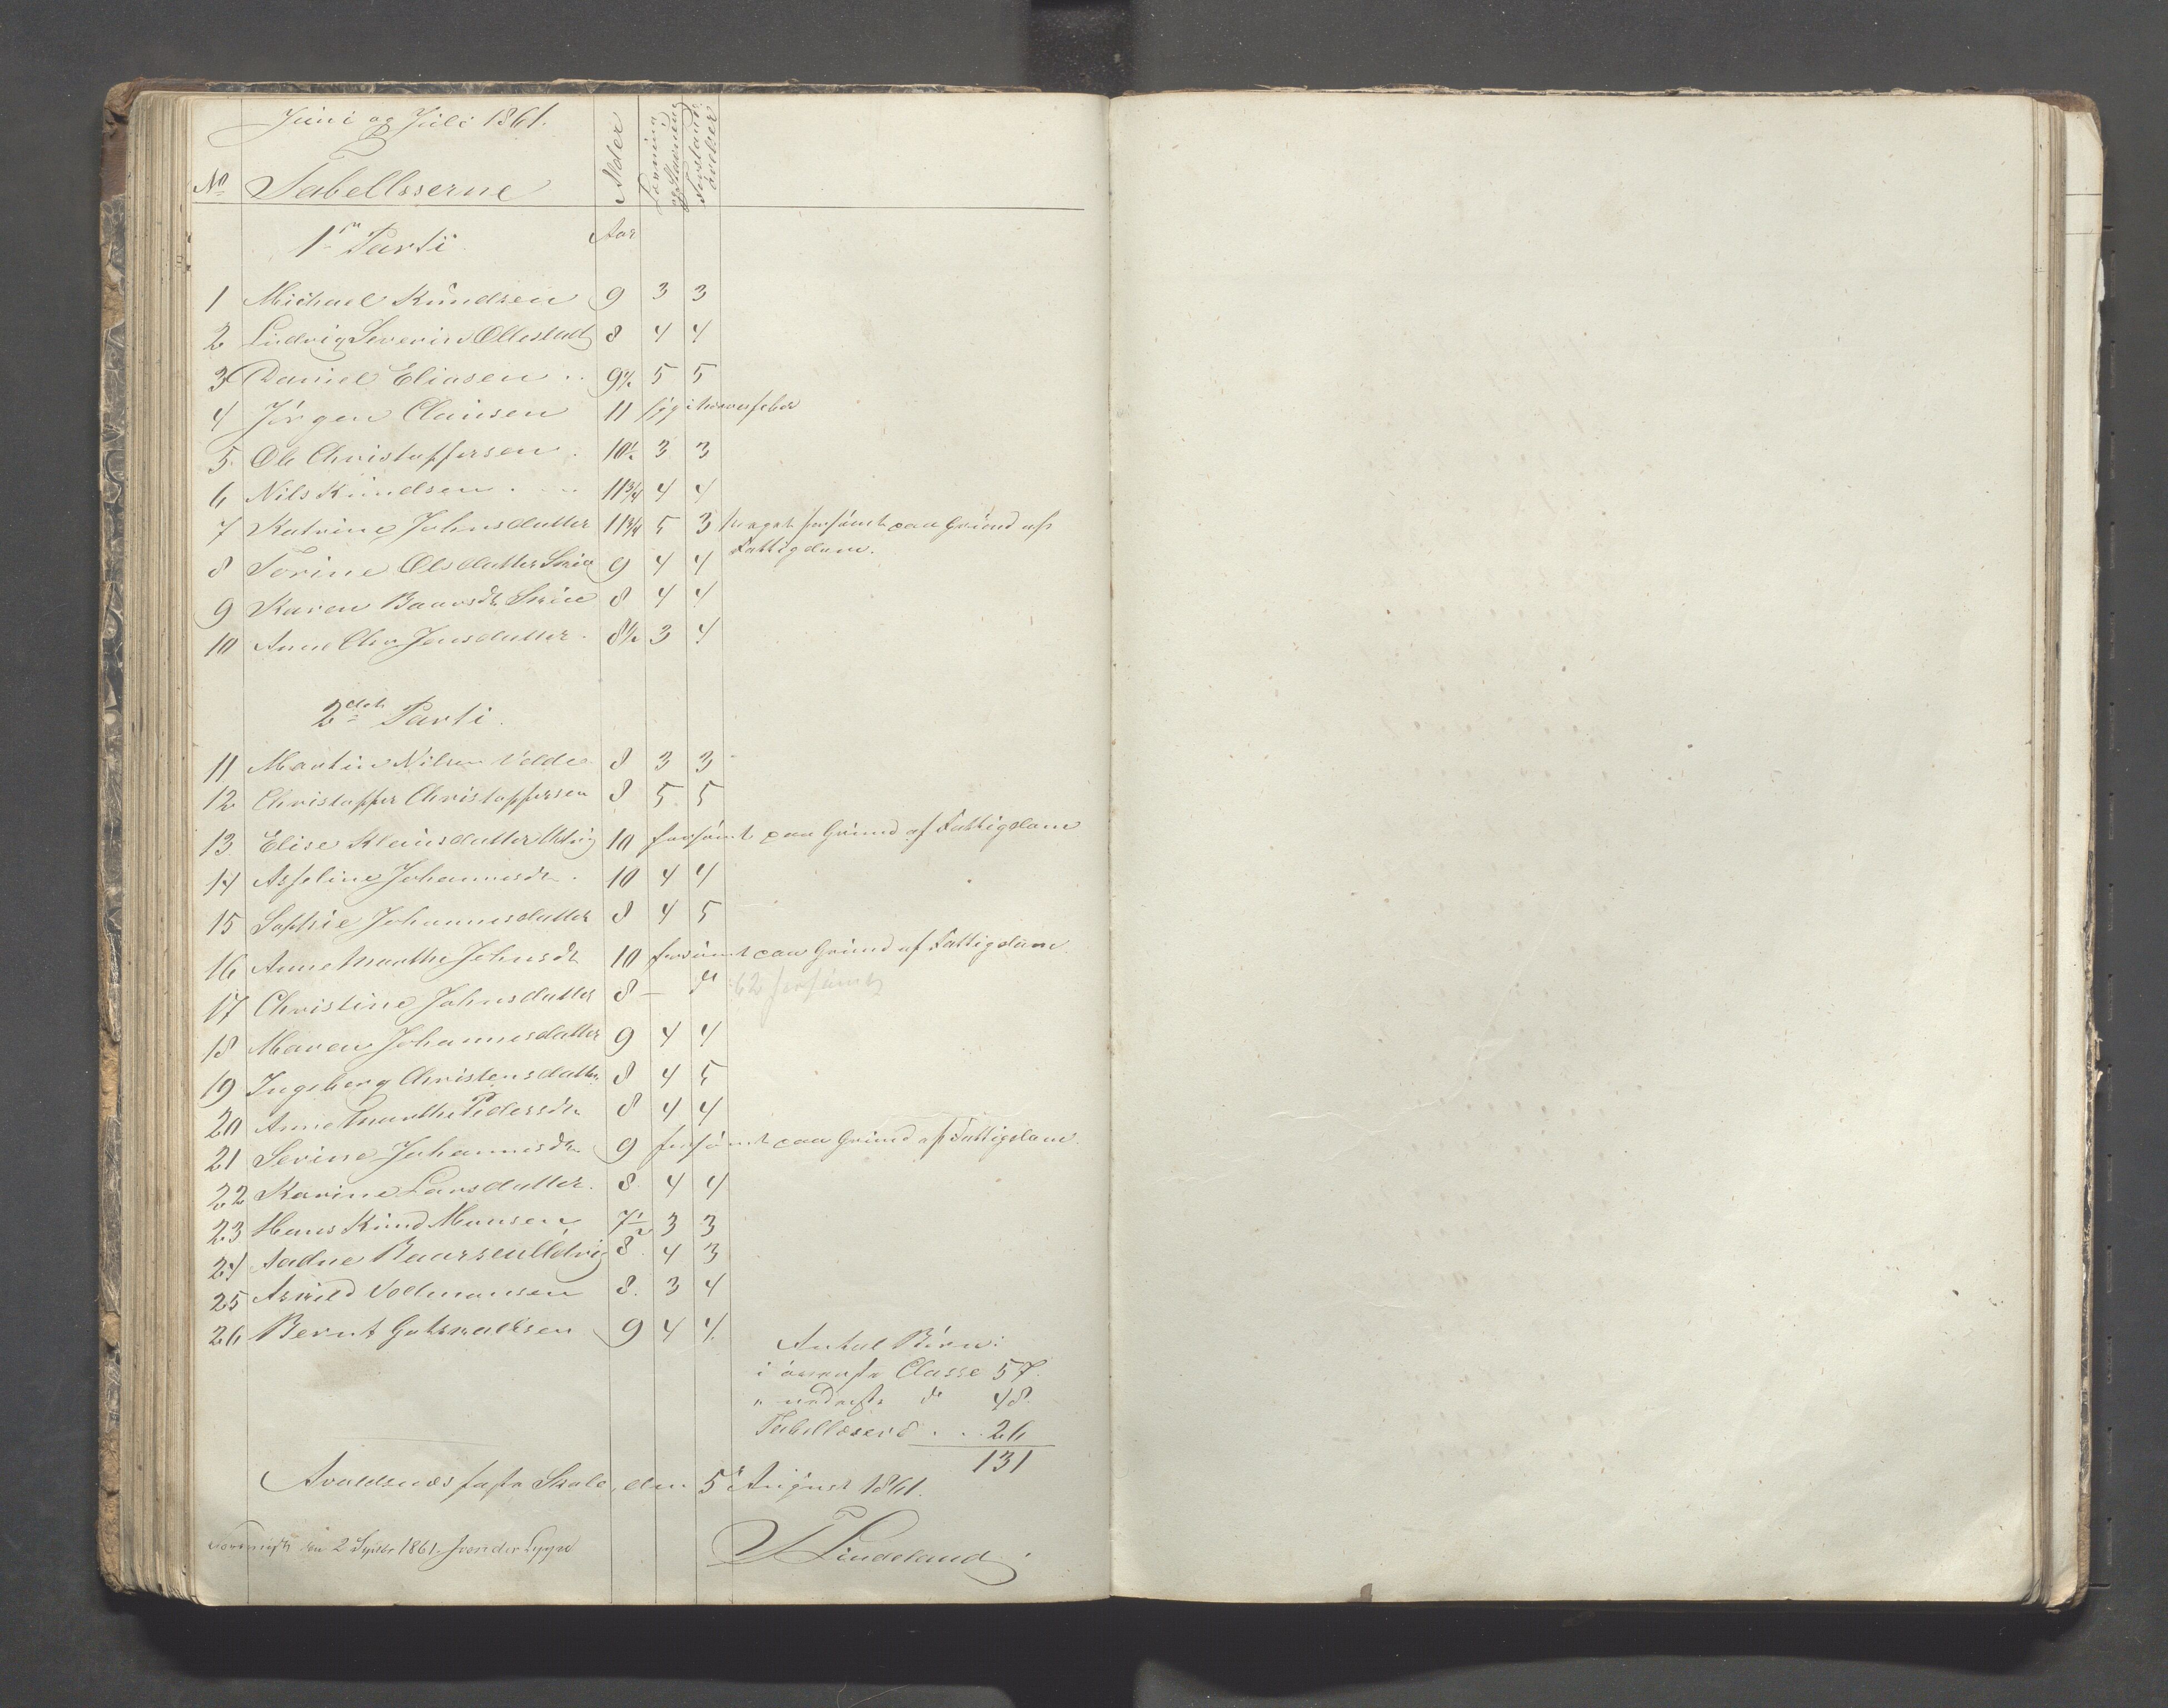 Juni og Juli 1861.
No Tabellsserne Alder Læsning og Stavning Forstandsøvelser
1ste Parti. Aar
1 Michael Knudsen 9 3 3
2 Ludvig Severin Ollestad 8 4 4
3 Daniel Eliasen .. 9½ 5 5
4 Jörgen Clausen 11 syg i
5 Ole Christoffersen . 10½ 3 3
6 Nils Knudsen . .. 11¾ 4 4
7 Katrine Johnsdatter 11¾ 5 3 meget forsömt paa Grund af
Fattigdom.
8 Torine Olsdatter 9 4 4
9 Karen Baarsdr 8 4 4
10 Anne Chr. Jensdatter . 8½ 3 4
2det Parti.
11 Martin Nilsen Velde 8 3 3
12 Christoffer Christoffersen 8 5 5
13 Elise Klausdatter Utvig 10 forsömt paa Grund af Fattigdom
14 Asseline Johannesdr . 10 4 4
15 Sophie Johannesdatter 8 4 5
16 Anne Marthe Johnsdr 10 forsömt paa Grund af Fattigdom.
17 Christine Johnsdatter 8 — do 62 forsömt
18 Maren Johannesdatter 9 4 4
19 Ingeborg Christensdatter 8 4 5
20 Anne Marthe Pedersdr 8 4 4
21 Serine Johannesdr 9 forsömt paa Grund af Fattigdom.
22 Karine Larsdatter. 8 4 4
23 Hans Knud Monsen 7½ 3 3
24 Aadne Baarsen Utvig 8 4 3
25 8. 3 4
26 Bernt Gotskalksen 9 4 4.
Antal Börn:
i överste Classe 57.
" nederste do 48.
Tabellæsere . . 26
131
Avaldsnæs faste Skole, den 5te August 1861.
T Lindeland.
den 2 Septbr 1861.